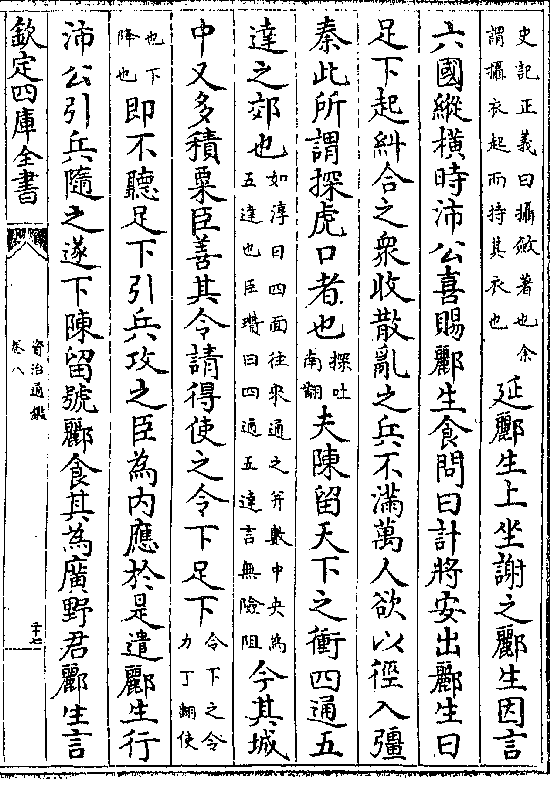 史記正義曰攝斂著也余
謂攝衣起而持其衣也
延酈生上坐謝之酈生因言
六國縱橫時沛公喜賜酈生食問曰計將安出酈生曰
足下起糾合之衆收散亂之兵不滿萬人欲以徑入彊
秦此所謂探虎口者也
探吐
南翻
夫陳留天下之衝四通五
達之郊也
如淳曰四面往來通之并數中央為
五達也臣瓚曰四通五達言無險阻
今其城
中又多積粟臣善其令請得使之令下足下
令下之令
力丁翻使
也下
降也
即不聽足下引兵攻之臣為内應於是遣酈生行
沛公引兵隨之遂下陳留號酈食其為廣野君酈生言
欽定四庫全書
資治通鑑
卷八
二十七